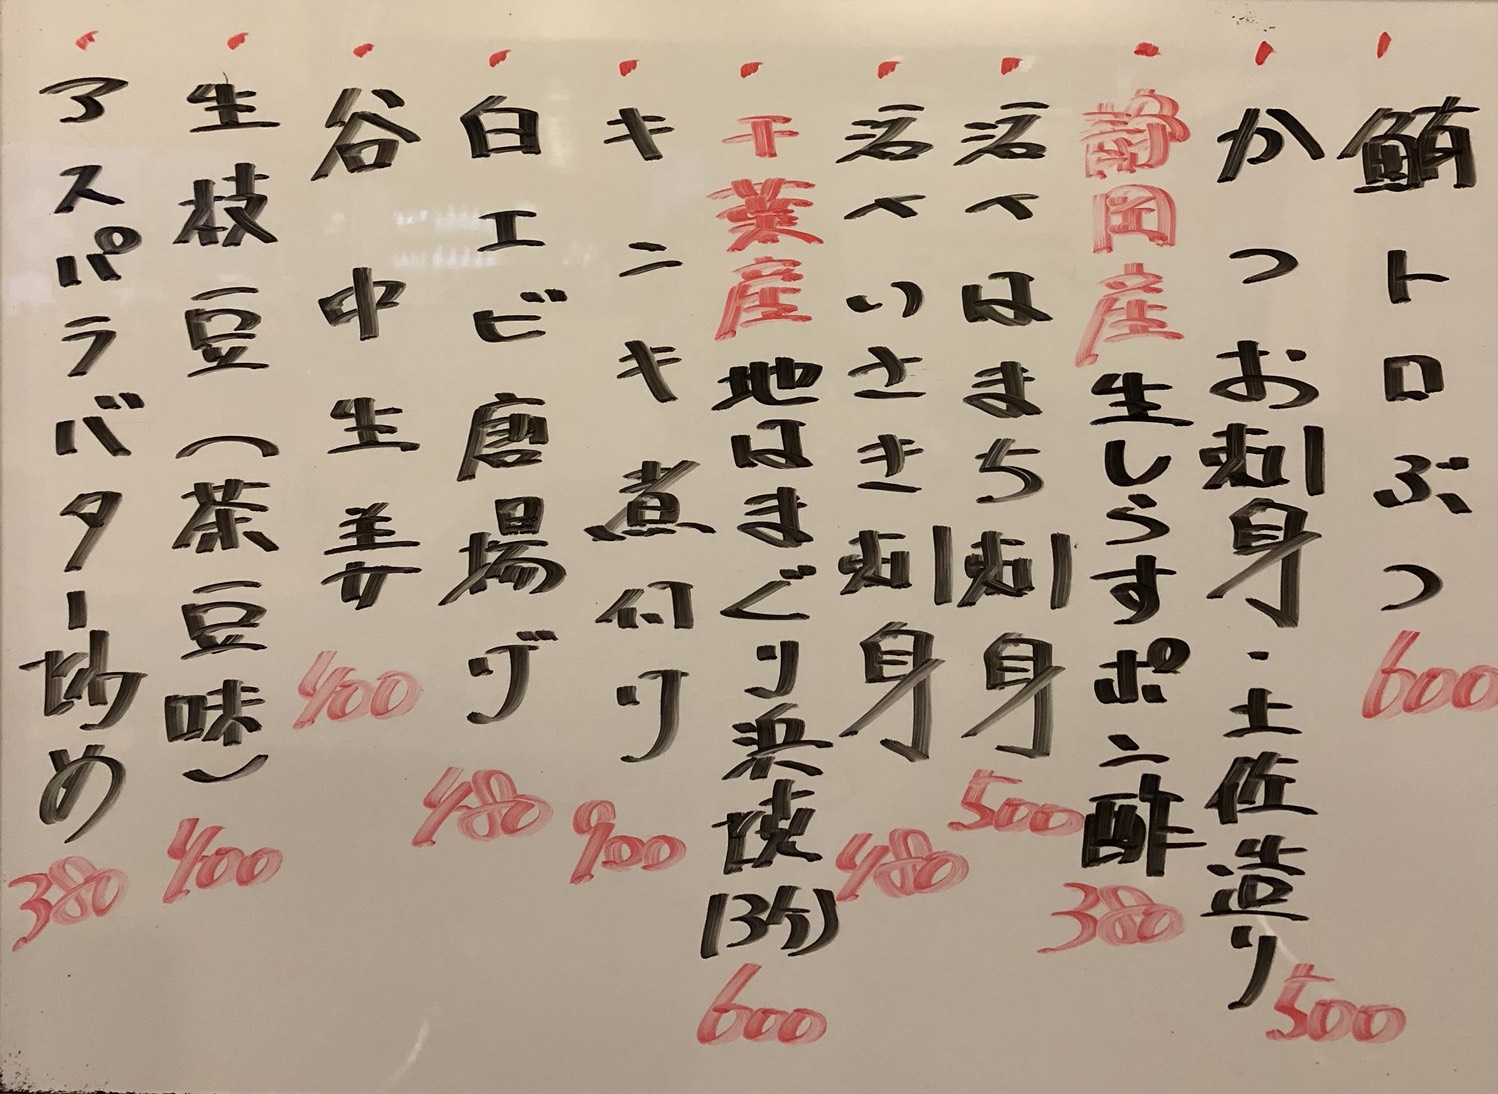 鮪トロぶつ 600
かつお刺身・土佐造り 500
静岡産生しらすポン酢 380
活〆はまち刺身 500
活〆いさき刺身 480
千葉産地はまぐり浜焼(3ケ) 600
キンキ煮付け 900
白エビ唐揚げ 480
谷中生姜 400
生枝豆(茶豆味) 400
アスパラバター炒め 380